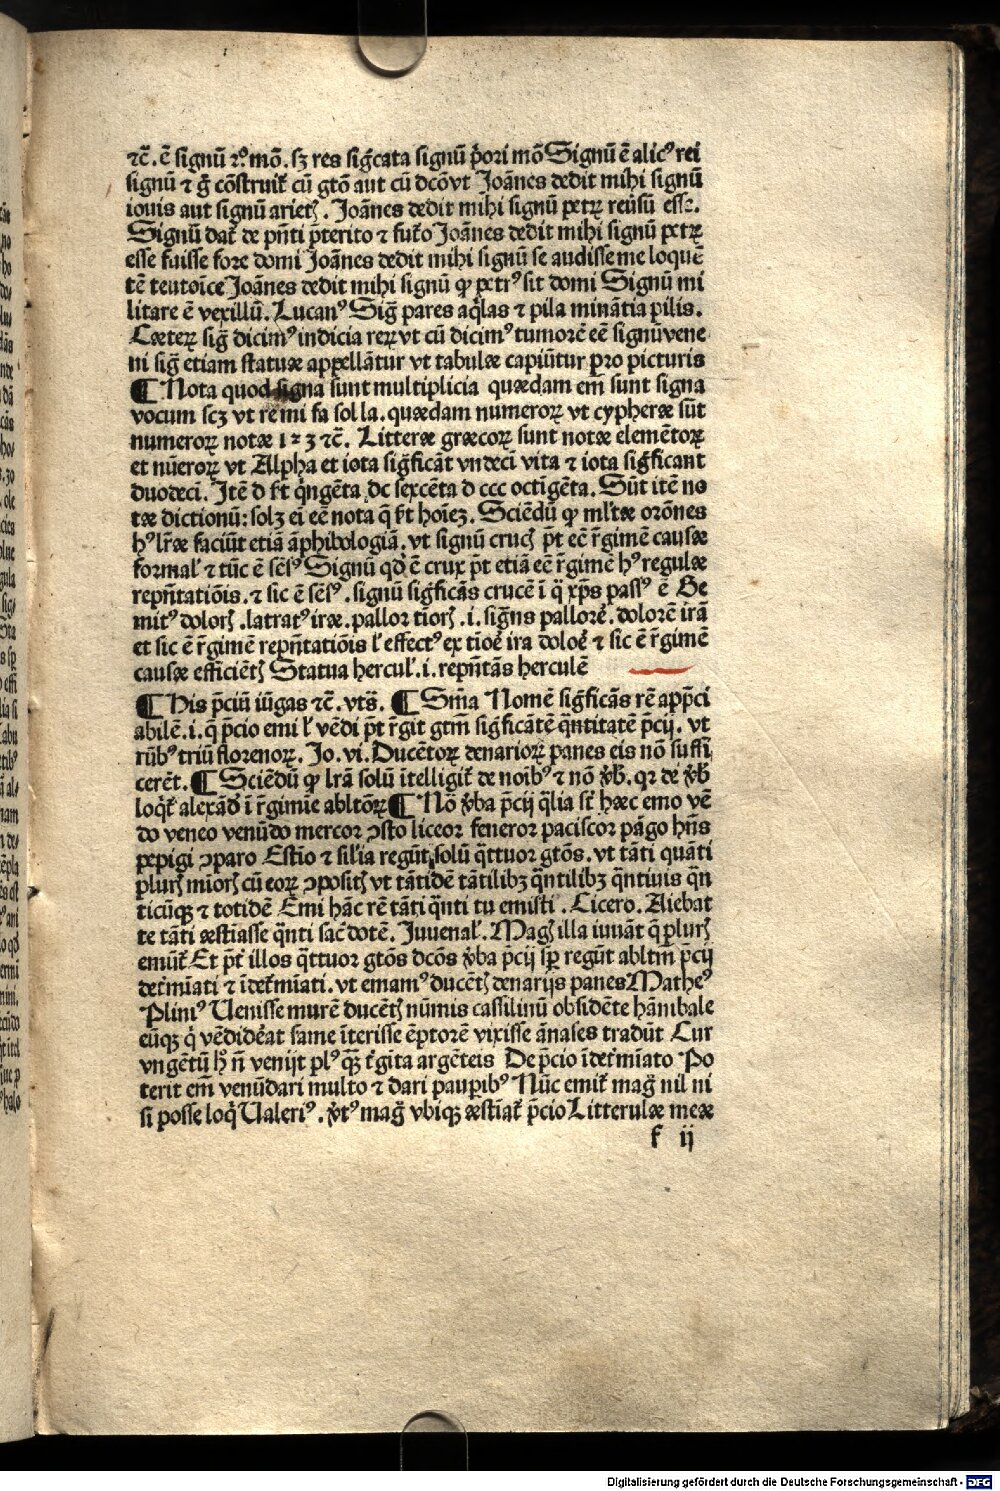 ⁊c̄. ē signū ⁊ꝰ mō. sꝫ res siḡcata signū p̄ori mō Signū ē alicꝰ rei
signū ⁊ ḡ cōstruit̄ cū gtō aut cū dcō vt Joānes dedit mihi signū
iouis aut signū arietꝭ. Joānes dedit mihi signū petrꝝ reūsū esse.
Signū dat̄ de pn̄ti p̄terito ⁊ fut̄o Joānes dedit mihi signū petrꝝ
esse fuisse fore domi Joānes dedit mihi signū se audisse me loquē
tē teutoīce Joānes dedit mihi signū ꝙ petrꝰ sit domi Signū mi
litare ē vexillū. Lucanꝰ Siḡ pares aq̄las ⁊ pila minātia pilis.
Cæterꝝ siḡ dicimꝰ indicia rerꝝ vt cū dicimꝰ tumorē eē signū vene
ni siḡ etiam statuæ appellātur vt tabulæ capiūtur pro picturis
¶ Nota quod signa sunt multiplicia quædam em̄ sunt signa
vocum scꝫ vt re mi fa sol la. quædam numerorꝝ vt cypheræ sūt
numerorꝝ notæ 1 2 3 ⁊c̄. Litteræ græcorꝝ sunt notæ elemētorꝝ
et nūerorꝝ vt Alpha et iota siḡficāt vndecī vita ⁊ iota siḡficant
duodecī. Itē d f̄t q̄ngēta dc sexcēta d ccc octīgēta. Sūt itē no
tæ dictionū: solꝫ ei eē nota q̄ f̄t hoīeꝫ. Sciēdū ꝙ ml̄tæ orōnes
hꝰ lr̄æ faciūt etiā āphibologiā. vt signū crucꝭ p̄t eē r̄gimē causæ
formal̄ ⁊ tūc ē sēsꝰ Signū qd̄ ē crux p̄t etiā eē r̄gimē hꝰ regulæ
repn̄tatiōis. ⁊ sic ē sēsꝰ. signū siḡficās crucē ī q̄ xp̄s passꝰ ē Ge
mitꝰ dolorꝭ. latratꝰ iræ. pallor tiorꝭ .i. siḡns pallorē. dolorē irā
et sic ē r̄gimē repn̄tatiōis l̄ effectꝰ ex tioē ira doloē ⁊ sic ē r̄gimē
causæ efficiētꝭ Statua hercul̄ .i. repn̄tās herculē
¶ His p̄ciū iūgas ⁊c̄. vts̄. ¶ Sm̄a Nomē siḡficās rē app̄ci
abilē .i. q̄ p̄cio emi l̄ vēdi p̄t r̄git gtm̄ siḡficātē q̄ntitatē p̄cij. vt
rūbꝰ triū florenorꝝ. Jo. vi. Ducētorꝝ denariorꝝ panes eis nō suffi
cerēt. ¶ Sciēdū ꝙ lrā solū ītelligit̄ de noībꝰ ⁊ nō v̄b̄. qꝛ de v̄b̄
loq̄t̄ alexād̄ ī r̄gimīe abltōrꝝ ¶ Nō v̄ba p̄cij q̄lia st̄ hæc emo vē
do veneo venūdo mercor ꝯsto liceor feneror paciscor pāgo hn̄s
pepigi ꝯparo Estīo ⁊ sil̄ia regūt solū q̄ttuor gtōs. vt tāti quāti
plurꝭ mīorꝭ cū eorꝝ ꝯpositꝭ vt tātidē tātilibꝫ q̄ntilibꝫ q̄ntiuis q̄n
ticūqꝫ ⁊ totidē Emi hāc rē tāti q̄nti tu emisti. Cicero. Aiebat
te tāti æstiasse q̄nti sac̄dotē. Juuenal̄. Magꝭ illa iuuāt q̄ plurꝭ
emūt̄ Et p̄t̄ illos q̄ttuor gtōs dcōs v̄ba p̄cij sp̄ regūt abltm̄ p̄cij
det̄mīati ⁊ īdet̄mīati. vt emamꝰ ducētꝭ denarijs panes Matheꝰ
Pliniꝰ Uenisse murē ducētꝭ nūmis cassilinū obsidēte hānibale
eūqꝫ q̄ vēdidēat fame īterisse ēptorē vixisse ānases tradūt Cur
vngētū hꝰ n̄ venijt plꝰ qꝫ t̄gīta argēteis De p̄cio īdet̄mīato Po
terit em̄ venūdari multo ⁊ dari paupibꝰ Nūc emit̄ maḡ nil ni
si posse loq̄ Ualeriꝰ. v̄tꝰ maḡ vbiqꝫ æstīat̄ p̄cio Litterulæ meæ
f ij
Digitalisierung gefördert durch die Deutsche Forschungsgemeinschaft - DFG